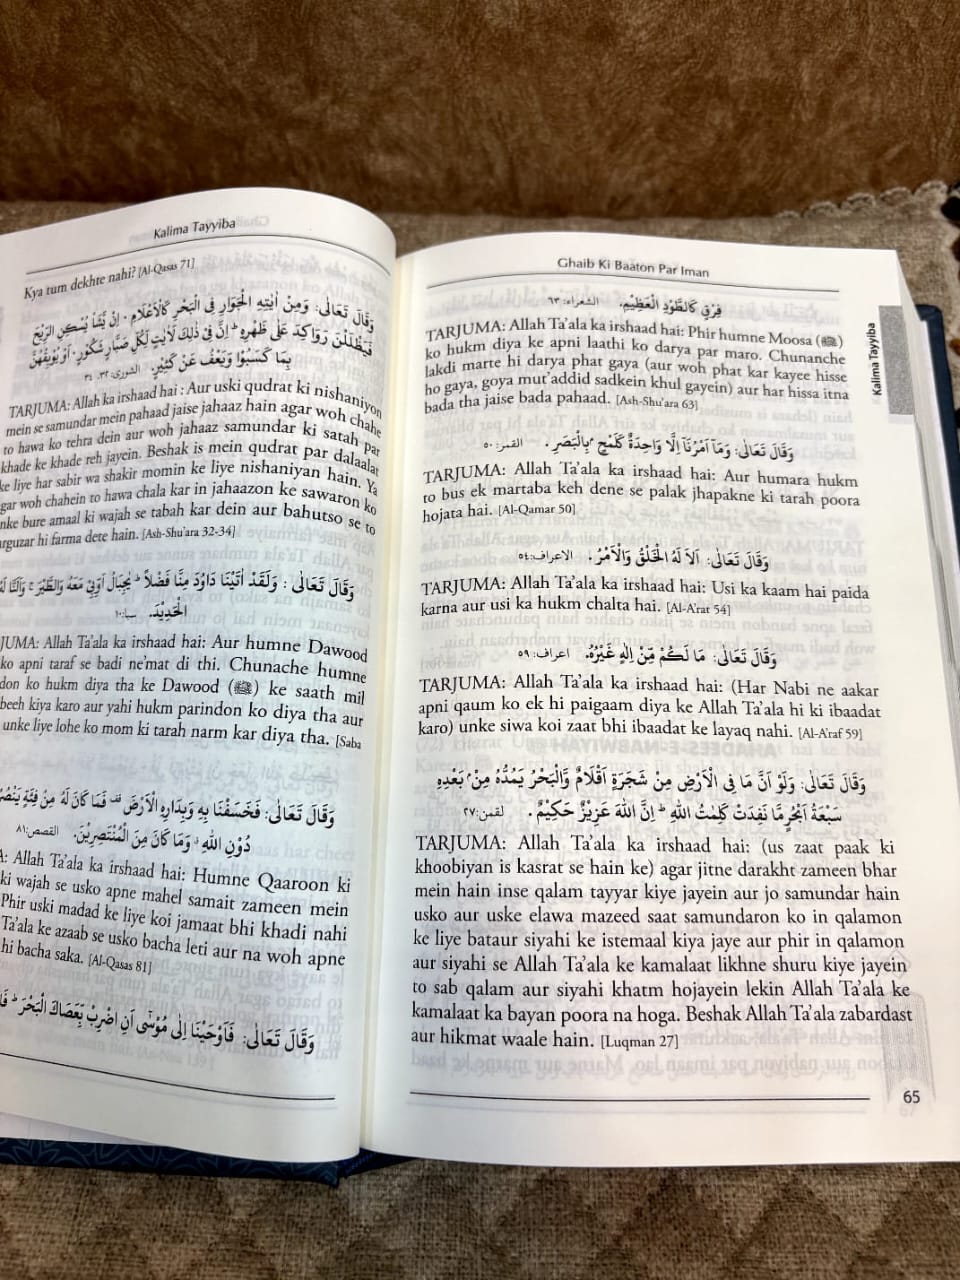 Kalima Tayyiba
Kya tum dekhte nahi? [Al-Qasas 71]
وَقَالَ تَعَالٰى: وَمِنْ اٰيٰتِهِ الْجَوَارِ فِى الْبَحْرِ كَالْاَعْلَامِ۔ اِنْ يَّشَاْ يُسْكِنِ الرِّيْحَ
فَيَظْلَلْنَ رَوَاكِدَ عَلٰى ظَهْرِهٖ ؕ اِنَّ فِىْ ذٰلِكَ لَاٰيٰتٍ لِّكُلِّ صَبَّارٍ شَكُوْرٍ۔ اَوْ يُوْبِقْهُنَّ
بِمَا كَسَبُوْا وَيَعْفُ عَنْ كَثِيْرٍ۔ الشورى: ٣٢۔ ٣٤
TARJUMA: Allah Ta'ala ka irshaad hai : Aur uski qudrat ki nishaniyon
mein se samundar mein pahaad jaise jahaaz hain agar woh chahe
to hawa ko tehra dein aur woh jahaaz samundar ki satah par
khade ke khade reh jayein. Beshak is mein qudrat par dalaalat
ke liye har sabir wa shakir momin ke liye nishaniyan hain. Ya
gar woh chahein to hawa chala kar in jahaazon ke sawaron ko
nke bure amaal ki wajah se tabah kar dein aur bahutso se to
arguzar hi farma dete hain. [Ash-Shu'ara 32-34]
وَقَالَ تَعَالٰى : وَلَقَدْ اٰتَيْنَا دَاوٗدَ مِنَّا فَضْلًا ؕ يٰجِبَالُ اَوِّبِىْ مَعَهٗ وَالطَّيْرَ ۚ وَاَلَنَّا لَهُ
الْحَدِيْدَ۔ سبا: ١٠
JUMA: Allah Ta'ala ka irshaad hai: Aur humne Dawood
ko apni taraf se badi ne'mat di thi. Chunache humne
don ko hukm diya tha ke Dawood (ﷺ) ke saath mil
beeh kiya karo aur yahi hukm parindon ko diya tha aur
unke liye lohe ko mom ki tarah narm kar diya tha. [Saba
وَقَالَ تَعَالٰى: فَخَسَفْنَا بِهٖ وَبِدَارِهِ الْاَرْضَ فَمَا كَانَ لَهٗ مِنْ فِئَةٍ يَّنْصُرُ
دُوْنِ اللّٰهِ وَمَا كَانَ مِنَ الْمُنْتَصِرِيْنَ۔ القصص: ٨١
A: Allah Ta'ala ka irshaad hai: Humne Qaaroon ki
ki wajah se usko apne mahel samait zameen mein
Phir uski madad ke liye koi jamaat bhi khadi nahi
Ta'ala ke azaab se usko bacha leti aur na woh apne
hi bacha saka. [Al-Qasas 81]
وَقَالَ تَعَالٰى: فَاَوْحَيْنَا اِلٰى مُوْسٰٓى اَنِ اضْرِبْ بِّعَصَاكَ الْبَحْرَ ؕ
Ghaib Ki Baaton Par Iman
فِرْقٍ كَالطَّوْدِ الْعَظِيْمِ۔ الشعراء: ٦٣
TARJUMA: Allah Ta'ala ka irshaad hai: Phir humne Moosa (ﷺ)
ko hukm diya ke apni laathi ko darya par maro. Chunanche
lakdi marte hi darya phat gaya (aur woh phat kar kayee hisse
ho gaya, goya mut'addid sadkein khul gayein) aur har hissa itna
bada tha jaise bada pahaad. [Ash-Shu'ara 63]
وَقَالَ تَعَالٰى: وَمَآ اَمْرُنَآ اِلَّا وَاحِدَةٌ كَلَمْحٍۭ بِالْبَصَرِ۔ القمر: ٥٠
TARJUMA: Allah Ta'ala ka irshaad hai: Aur humara hukm
to bus ek martaba keh dene se palak jhapakne ki tarah poora
hojata hai. [Al-Qamar 50]
وَقَالَ تَعَالٰى: اَلَا لَهُ الْخَلْقُ وَالْاَمْرُ۔ الاعراف: ٥٤
TARJUMA: Allah Ta'ala ka irshaad hai: Usi ka kaam hai paida
karna aur usi ka hukm chalta hai. [Al-A'rat 54]
وَقَالَ تَعَالٰى: مَا لَكُمْ مِّنْ اِلٰهٍ غَيْرُهٗ۔ اعراف: ٥٩
TARJUMA: Allah Ta'ala ka irshaad hai: (Har Nabi ne aakar
apni qaum ko ek hi paigaam diya ke Allah Ta'ala hi ki ibaadat
karo) unke siwa koi zaat bhi ibaadat ke layaq nahi. [Al-A'raf 59]
وَقَالَ تَعَالٰى: وَلَوْ اَنَّ مَا فِى الْاَرْضِ مِنْ شَجَرَةٍ اَقْلَامٌ وَّالْبَحْرُ يَمُدُّهٗ مِنْۢ بَعْدِهٖ
سَبْعَةُ اَبْحُرٍ مَّا نَفِدَتْ كَلِمٰتُ اللّٰهِ ؕ اِنَّ اللّٰهَ عَزِيْزٌ حَكِيْمٌ۔ لقمن: ٢٧
TARJUMA: Allah Ta'ala ka irshaad hai: (us zaat paak ki
khoobiyan is kasrat se hain ke) agar jitne darakht zameen bhar
mein hain inse qalam tayyar kiye jayein aur jo samundar hain
usko aur uske elawa mazeed saat samundaron ko in qalamon
ke liye bataur siyahi ke istemaal kiya jaye aur phir in qalamon
aur siyahi se Allah Ta'ala ke kamalaat likhne shuru kiye jayein
to sab qalam aur siyahi khatm hojayein lekin Allah Ta'ala ke
kamalaat ka bayan poora na hoga. Beshak Allah Ta'ala zabardast
aur hikmat waale hain. [Luqman 27]
65
Kalima Tayyiba